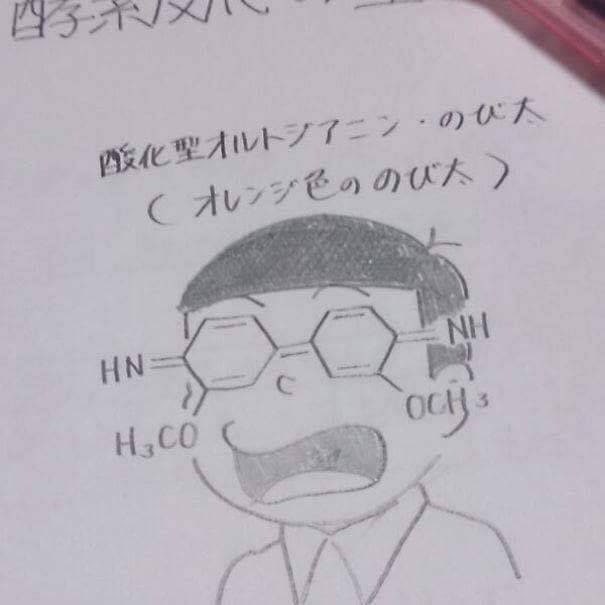 酵素反応
酸化型オルトジアニン・のび太
(オレンジ色ののび太)
HN
NH
H₃CO
OCH₃